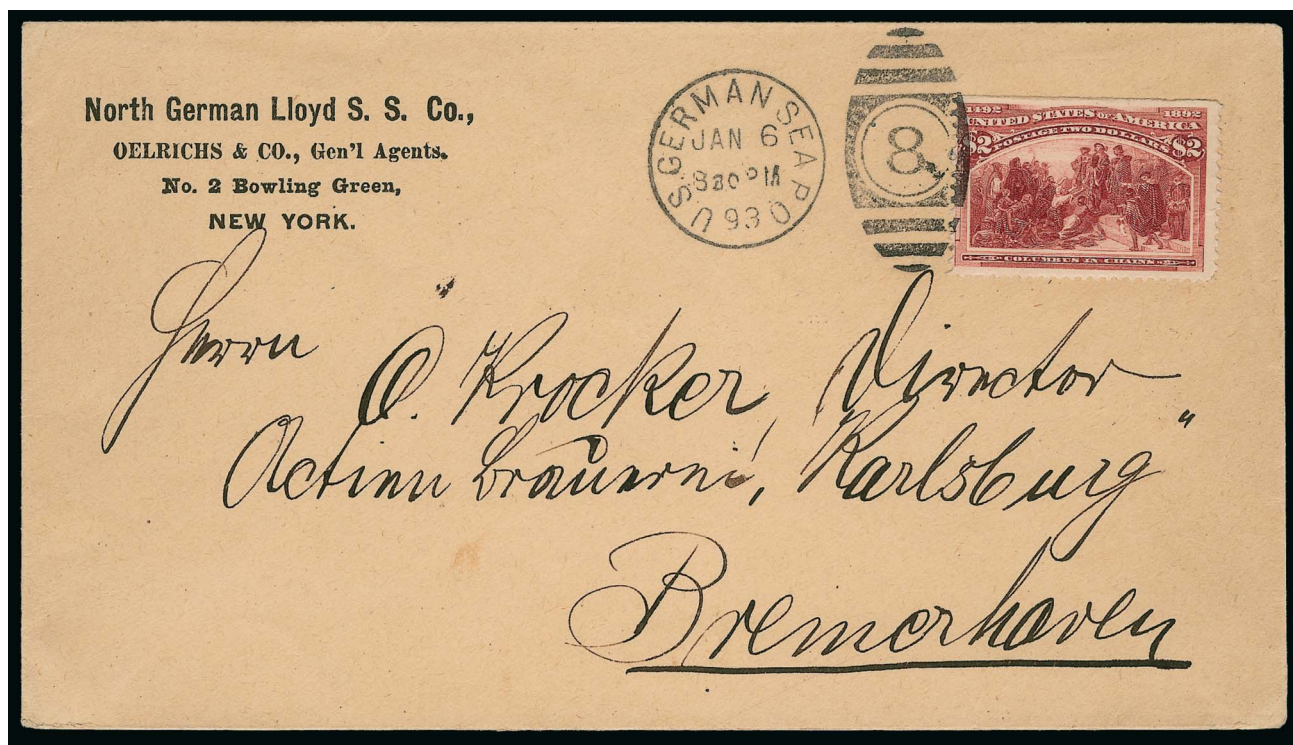 North German Lloyd S. S. Co.,
OELRICHS & CO., Gen'l Agents.
No. 2 Bowling Green,
NEW YORK.
US GERMAN SEA PO
JAN 6
8 30 PM
93
8
1492 1892
UNITED STATES OF AMERICA
$2 POSTAGE TWO DOLLARS $2
COLUMBUS IN CHAINS
Herrn
O. Krocker, Director
„Actien Brauerei, Karlsburg“
Bremerhaven